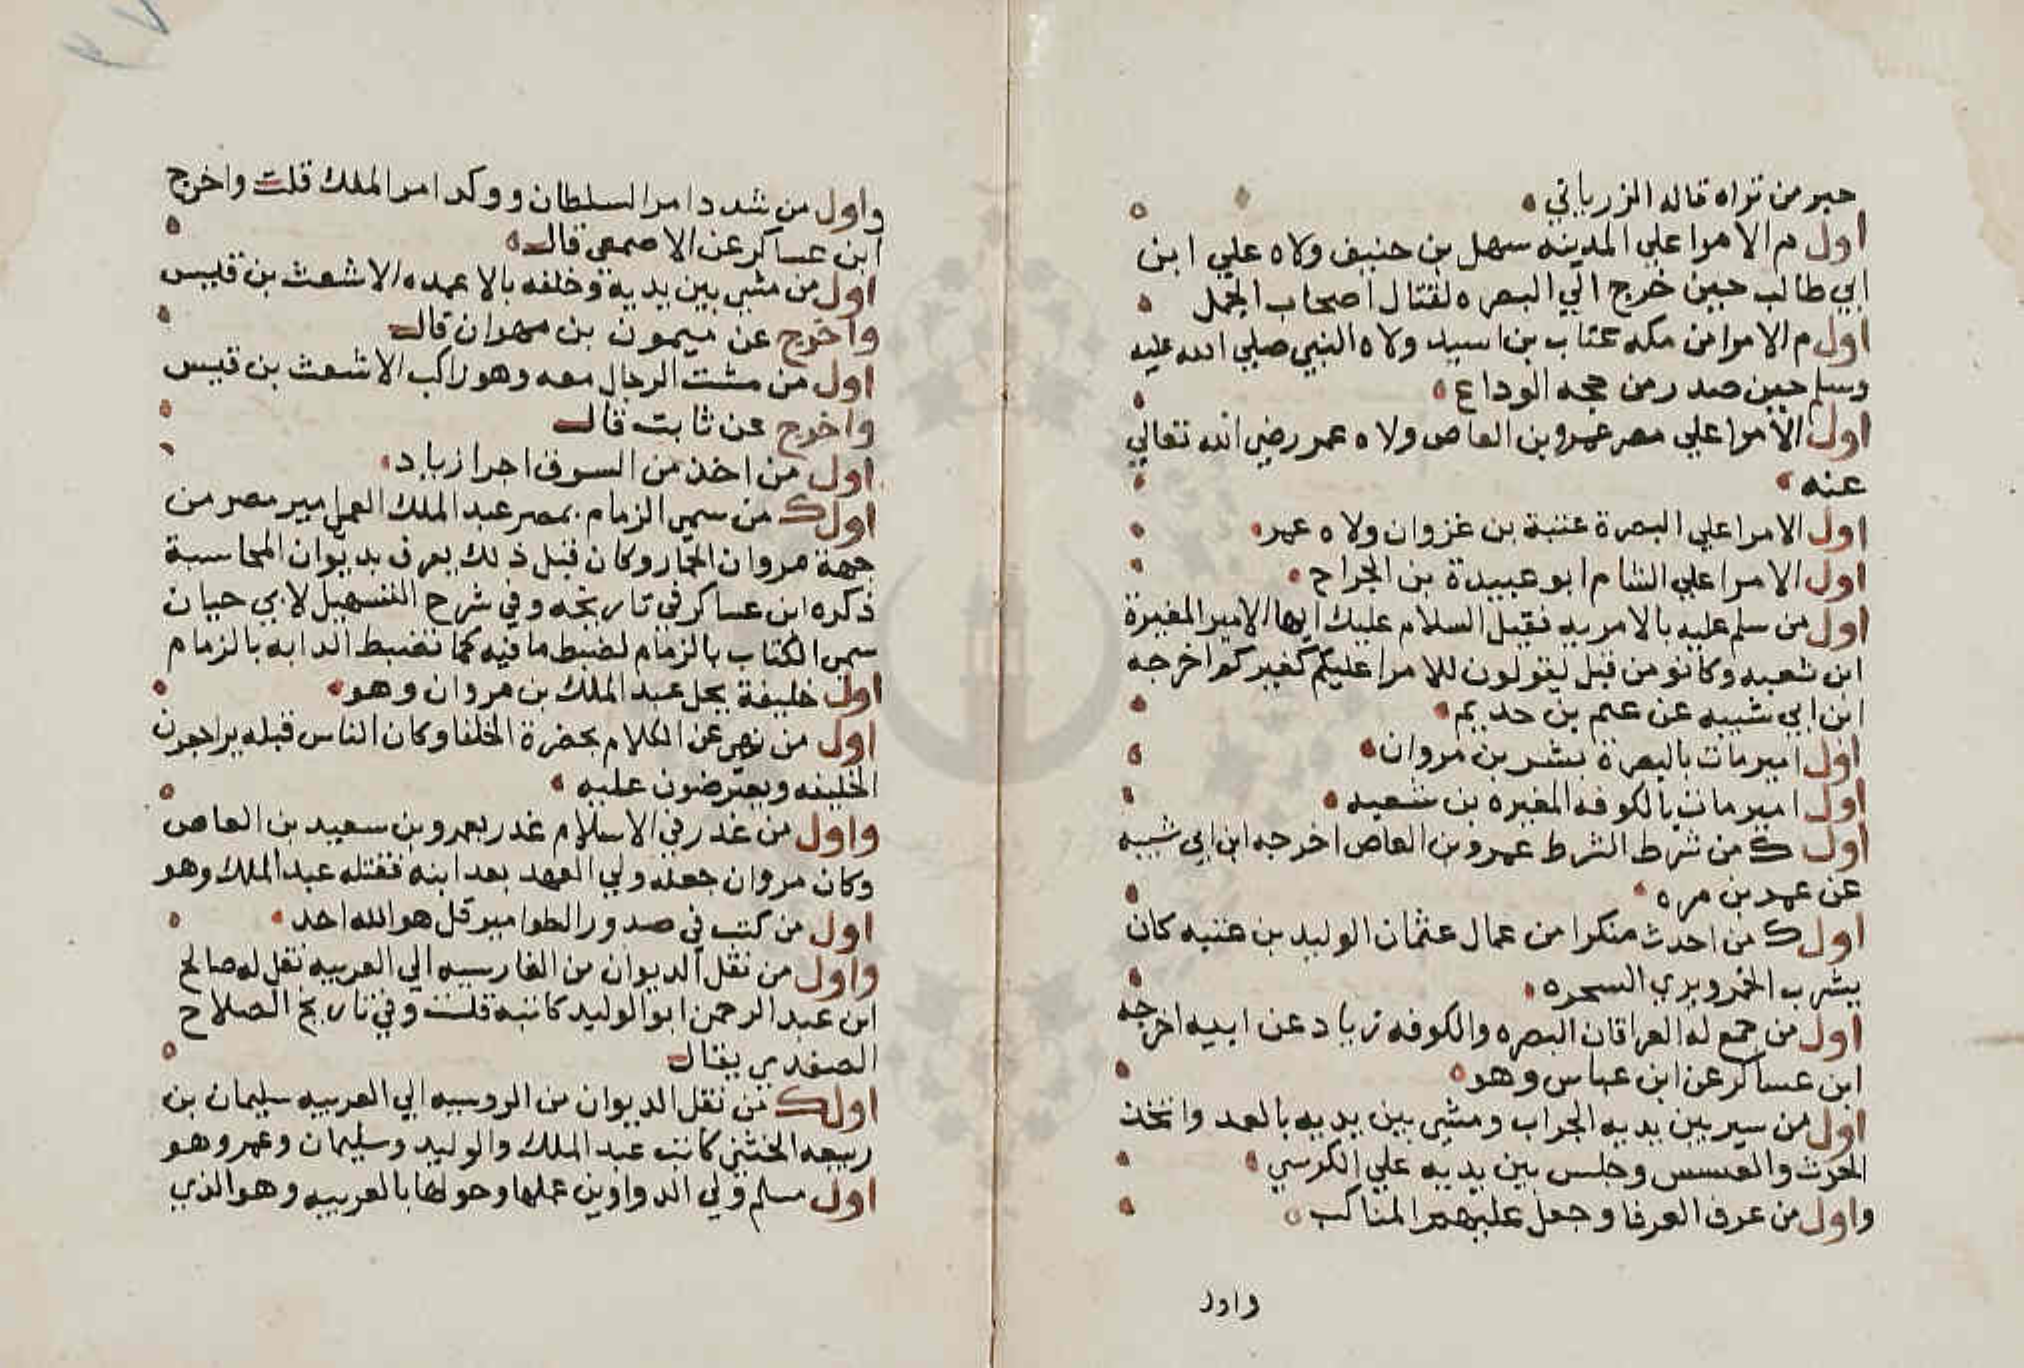 حبر من تراه قاله الزرباتي
اول م الامرا علي المدينه سهل بن حنيف ولاه علي ابن
ابي طالب حين خرج الي البصره لقتال اصحاب الجمل
اول م الامرا من مكه عتاب بن اسيد ولاه النبي صلي الله عليه
وسلم حين صدر من حجه الوداع
اول الامرا علي مصر عمرو بن العاص ولاه عمر رضي الله تعالي
عنه
اول الامرا علي البصرة عتبة بن غزوان ولاه عمر
اول الامرا علي الشام ابو عبيدة بن الجراح
اول من سلم عليه بالامريه فقيل السلام عليك ايها الامير المغيرة
ابن شعبه وكانو من قبل يقولون للامرا عليكم كغيركم اخرجه
ابن ابي شيبه عن بن حديم
اول امير مات بالبصرة بشر بن مروان
اول امير مات بالكوفه المغيره بن شعبه
اول ك من شرط الشرط عمرو بن العاص اخرجه ابن ابي شيبه
عن عمرو بن مره
اول ك من احدث منكرا من عمال عثمان الوليد بن عتبه كان
يشرب الخمر ويري السحره
اول من جمع له العراقان البصره والكوفه زياد عن ابيه اخرجه
ابن عساكر عن ابن عباس وهو
اول من سير بين يديه الحراب ومشي بين يديه بالعمد واتخذ
الحرث والعسس وجلس بين يديه علي الكرسي
واول من عرف العرفا وجعل عليهم المناكب
واول
واول من شدد امر السلطان ووكد امر الملك قلت واخرج
ابن عساكر عن الاصمعي قال
اول من مشي بين يديه وخلفه بالاعمده الاشعث بن قيس
واخرج عن ميمون بن مهران قال
اول من مشت الرجال معه وهو راكب الاشعث بن قيس
واخرج عن ثابت قال
اول من اخذ من السوق اجرا زياد
اول ك من سمي الزمام بمصر عبد الملك امير مصر من
جهة مروان الحمار وكان قبل ذلك يعرف بديوان المحاسبة
ذكره ابن عساكر في تاريخه وفي شرح التسهيل لابي حيان
سمي الكتاب بالزمام لضبط ما فيه كما تضبط الدابه بالزمام
اول خليفة بخل عبد الملك بن مروان وهو
اول من نهي عن الكلام بحضرة الخلفا وكان الناس قبله يراجعون
الخليفه ويعترضون عليه
واول من غدر في الاسلام غدر بعمرو بن سعيد بن العاص
وكان مروان جعله ولي العهد بعد ابنه فقتله عبد الملك وهو
اول من كتب في صدور الطوامير قل هو الله احد
واول من نقل الديوان من الفارسيه الي العربيه نقل له صالح
ابن عبد الرحمن ابو الوليد كاتبه قلت وفي تاريخ الصلاح
الصفدي يقال
اول ك من نقل الديوان من الروسيه الي العربيه سليمان بن
ربيعه الخشني كاتب عبد الملك والوليد وسليمان وعمر وهو
اول مسلم ولي الدواوين عملها وحولها بالعربيه وهو الذي